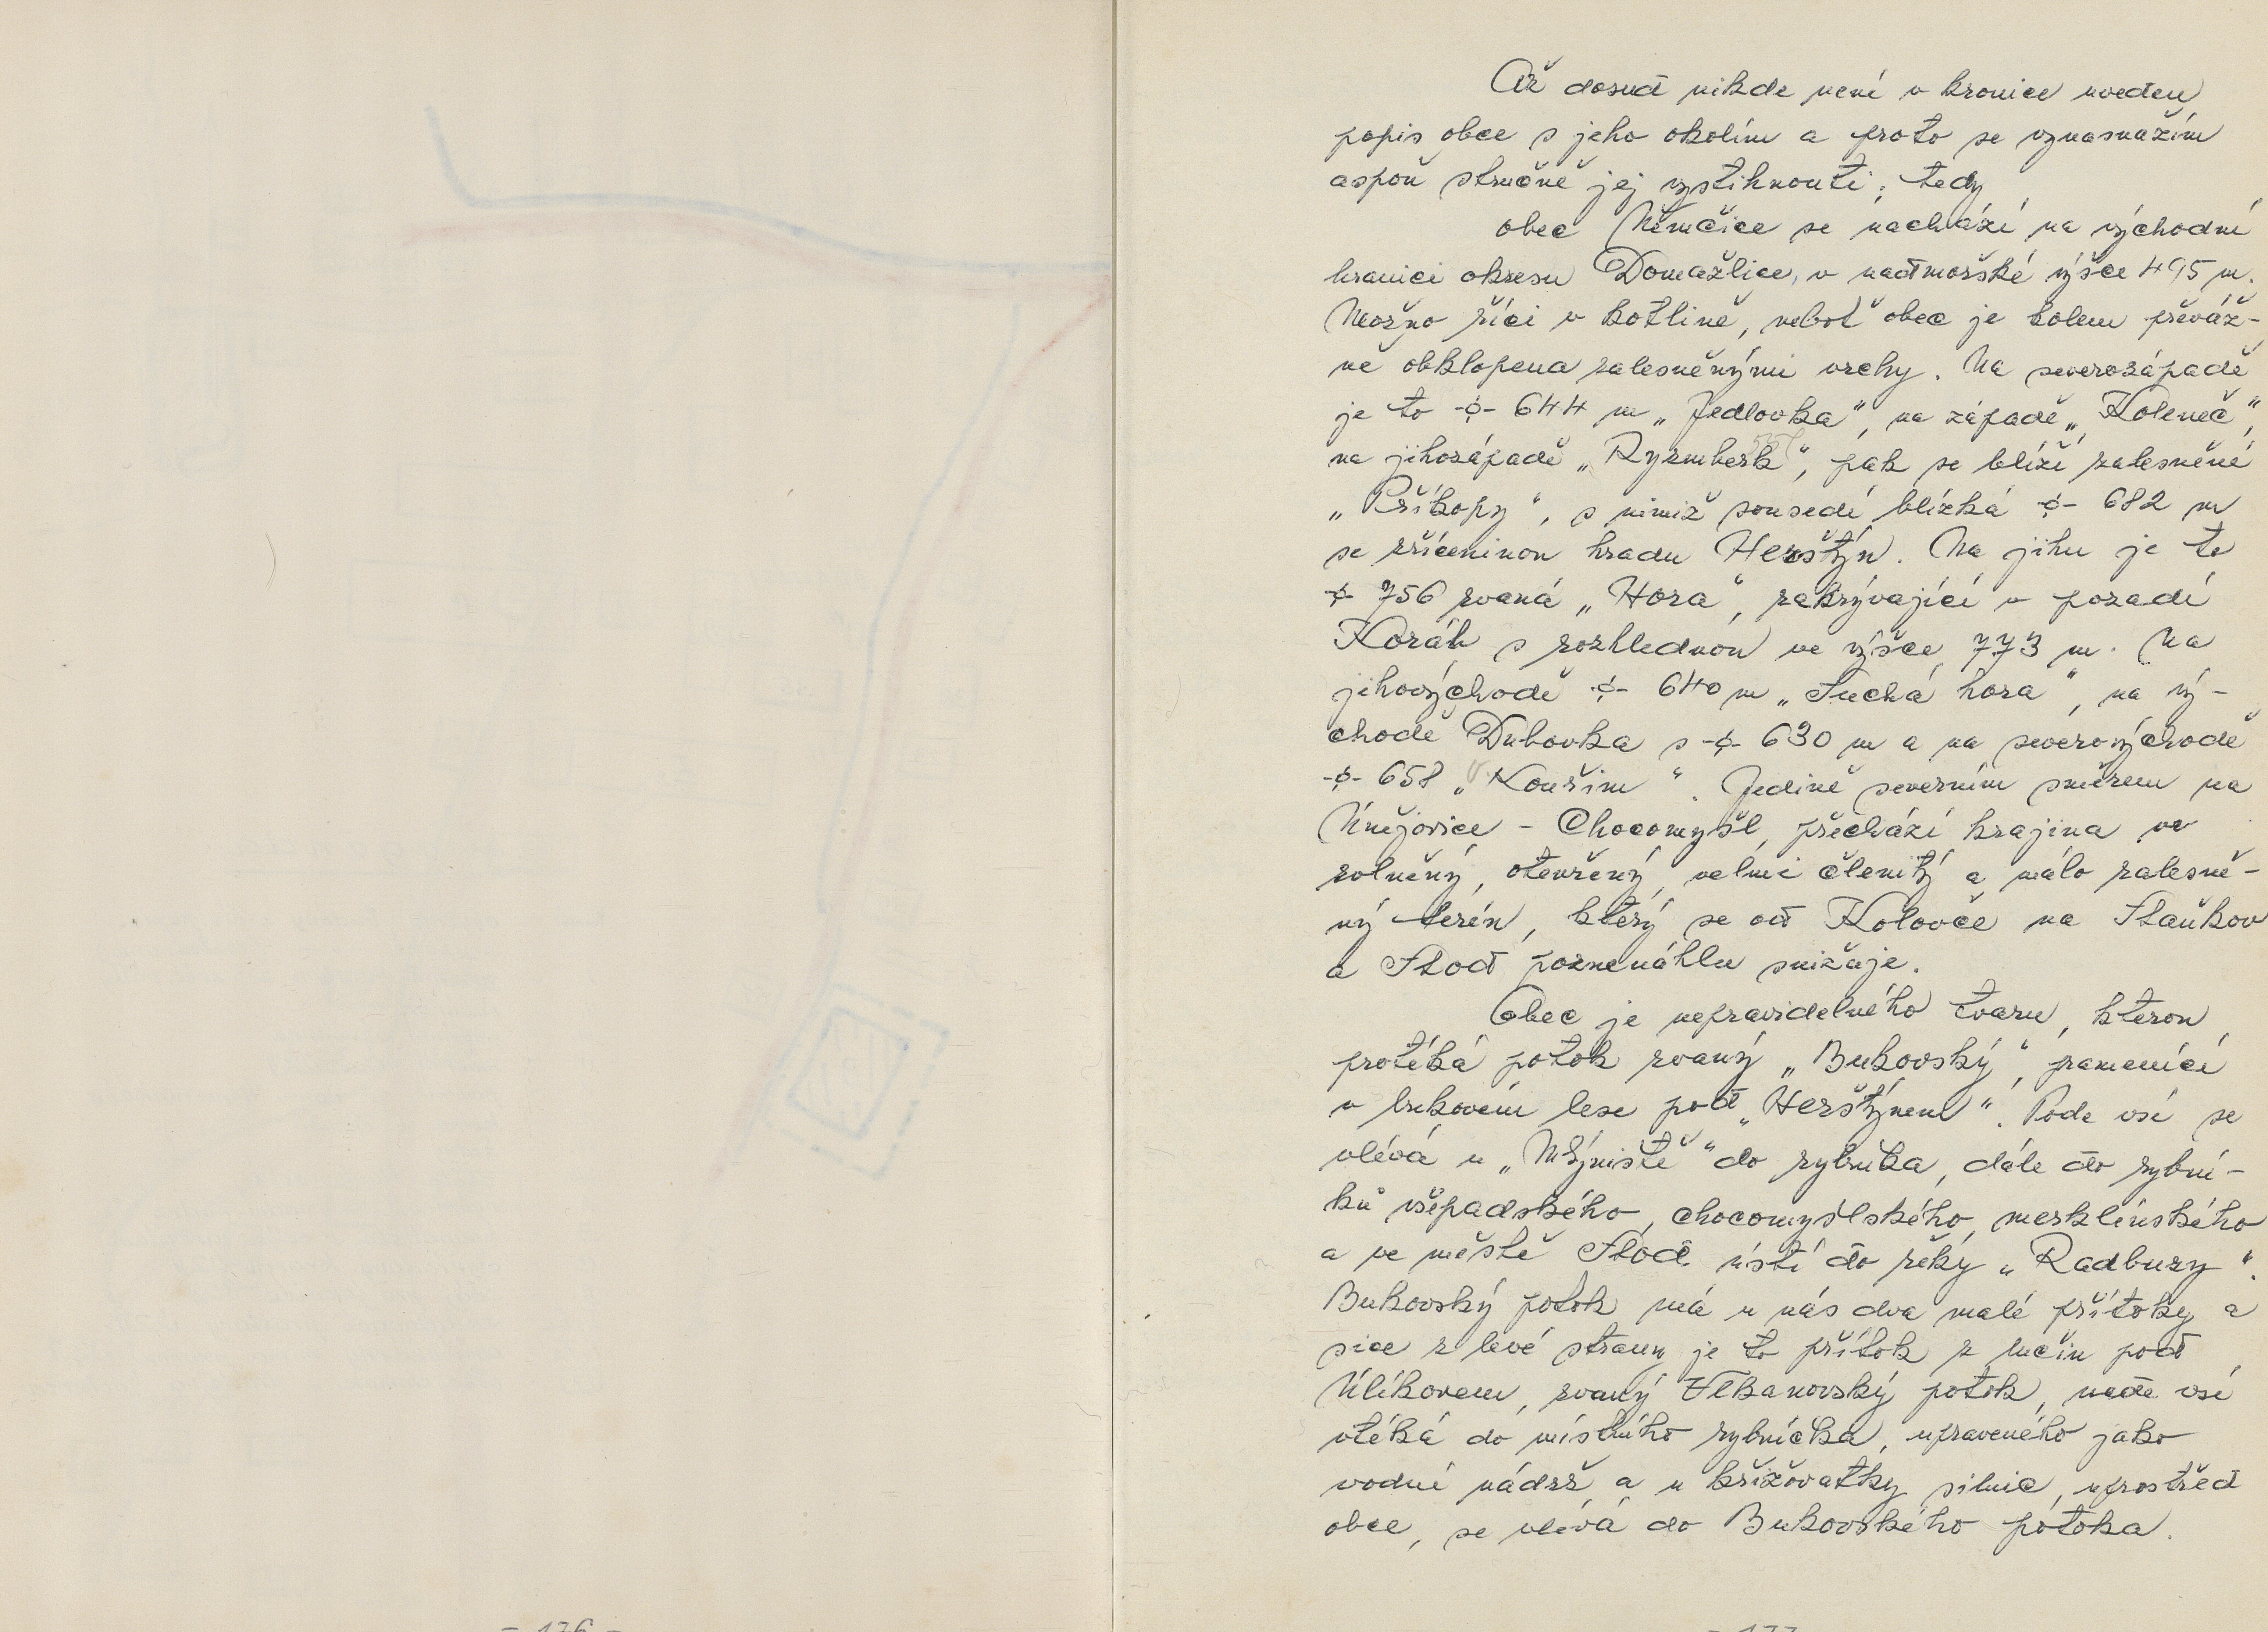 Až dosud nikde není v kronice uveden
popis obce s jeho okolím a proto se vynasnažím
aspoň stručně jej vystihnouti; tedy
obec Němčice se nachází na východní
hranici okresu Domažlice, v nadmořské výšce 495 m.
Možno říci v kotlině, neboť obec je kolem převáž-
ně obklopena zalesněnými vrchy. Na severozápadě
je to -ϕ- 644 m „Jedlovka“, na západě „Koleneč“,
na jihozápadě „Ryzmberk“, pak se blíží zalesněné
„Příkopy“, s nimiž sousedí blízká -ϕ- 682 m
se zříceninou hradu Herštýn. Na jihu je to
-ϕ- 756 zvaná „Hora“, zakrývající v pozadí
Koráb s rozhlednou ve výšce 773 m. Na
jihovýchodě -ϕ- 640 m „Suchá hora“, na vý-
chodě Dubovka s -ϕ- 630 m a na severovýchodě
-ϕ- 658 „Kouřim“. Jedině severním směrem na
Únějovice - Chocomyšl, přechází krajina ve
zvlněný, otevřený, velmi členitý a málo zalesně-
ný terén, který se od Koloveče na Staňkov
a Stod poznenáhlu snižuje.
Obec je nepravidelného tvaru, kterou
protéká potok zvaný „Bukovský“, pramenící
v bukovém lese pod „Herštýnem“. Pode vsí se
vlévá u „Mlýniště“ do rybníka, dále do rybní-
ků všepadského, chocomyšlského, merklínského
a ve městě Stod ústí do řeky „Radbuzy“.
Bukovský potok má u nás dva malé přítoky a
sice z levé strany je to přítok z lučin pod
Úlíkovem, zvaný Vlkanovský potok, nade vsí
vtéká do místního rybníčka, upraveného jako
vodní nádrž a u křižovatky silnic, uprostřed
obce, se vlévá do Bukovského potoka.